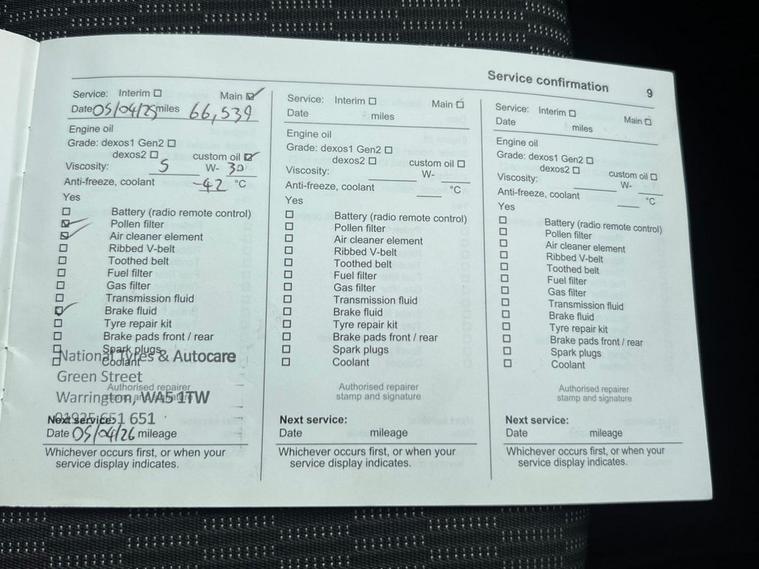 Service confirmation 9
Service: Interim ☐ Main ☑
Date 05/04/25 miles 66,539
Engine oil
Grade: dexos1 Gen2 ☐
dexos2 ☐ custom oil ☑
Viscosity: 5 W- 30
Anti-freeze, coolant -42 °C
Yes
☐ Battery (radio remote control)
☑ Pollen filter
☑ Air cleaner element
☐ Ribbed V-belt
☐ Toothed belt
☐ Fuel filter
☐ Gas filter
☐ Transmission fluid
☑ Brake fluid
☐ Tyre repair kit
☐ Brake pads front / rear
☐ Spark plugs
☐ Coolant
National Tyres & Autocare
Green Street
Authorised repairer
stamp and signature
Warrington, WA5 1TW
01925 651 651
Next service:
Date 05/04/26 mileage
Whichever occurs first, or when your
service display indicates.
Service: Interim ☐ Main ☐
Date miles
Engine oil
Grade: dexos1 Gen2 ☐
dexos2 ☐ custom oil ☐
Viscosity: W-
Anti-freeze, coolant °C
Yes
☐ Battery (radio remote control)
☐ Pollen filter
☐ Air cleaner element
☐ Ribbed V-belt
☐ Toothed belt
☐ Fuel filter
☐ Gas filter
☐ Transmission fluid
☐ Brake fluid
☐ Tyre repair kit
☐ Brake pads front / rear
☐ Spark plugs
☐ Coolant
Authorised repairer
stamp and signature
Next service:
Date mileage
Whichever occurs first, or when your
service display indicates.
Service: Interim ☐ Main ☐
Date miles
Engine oil
Grade: dexos1 Gen2 ☐
dexos2 ☐ custom oil ☐
Viscosity: W-
Anti-freeze, coolant °C
Yes
☐ Battery (radio remote control)
☐ Pollen filter
☐ Air cleaner element
☐ Ribbed V-belt
☐ Toothed belt
☐ Fuel filter
☐ Gas filter
☐ Transmission fluid
☐ Brake fluid
☐ Tyre repair kit
☐ Brake pads front / rear
☐ Spark plugs
☐ Coolant
Authorised repairer
stamp and signature
Next service:
Date mileage
Whichever occurs first, or when your
service display indicates.